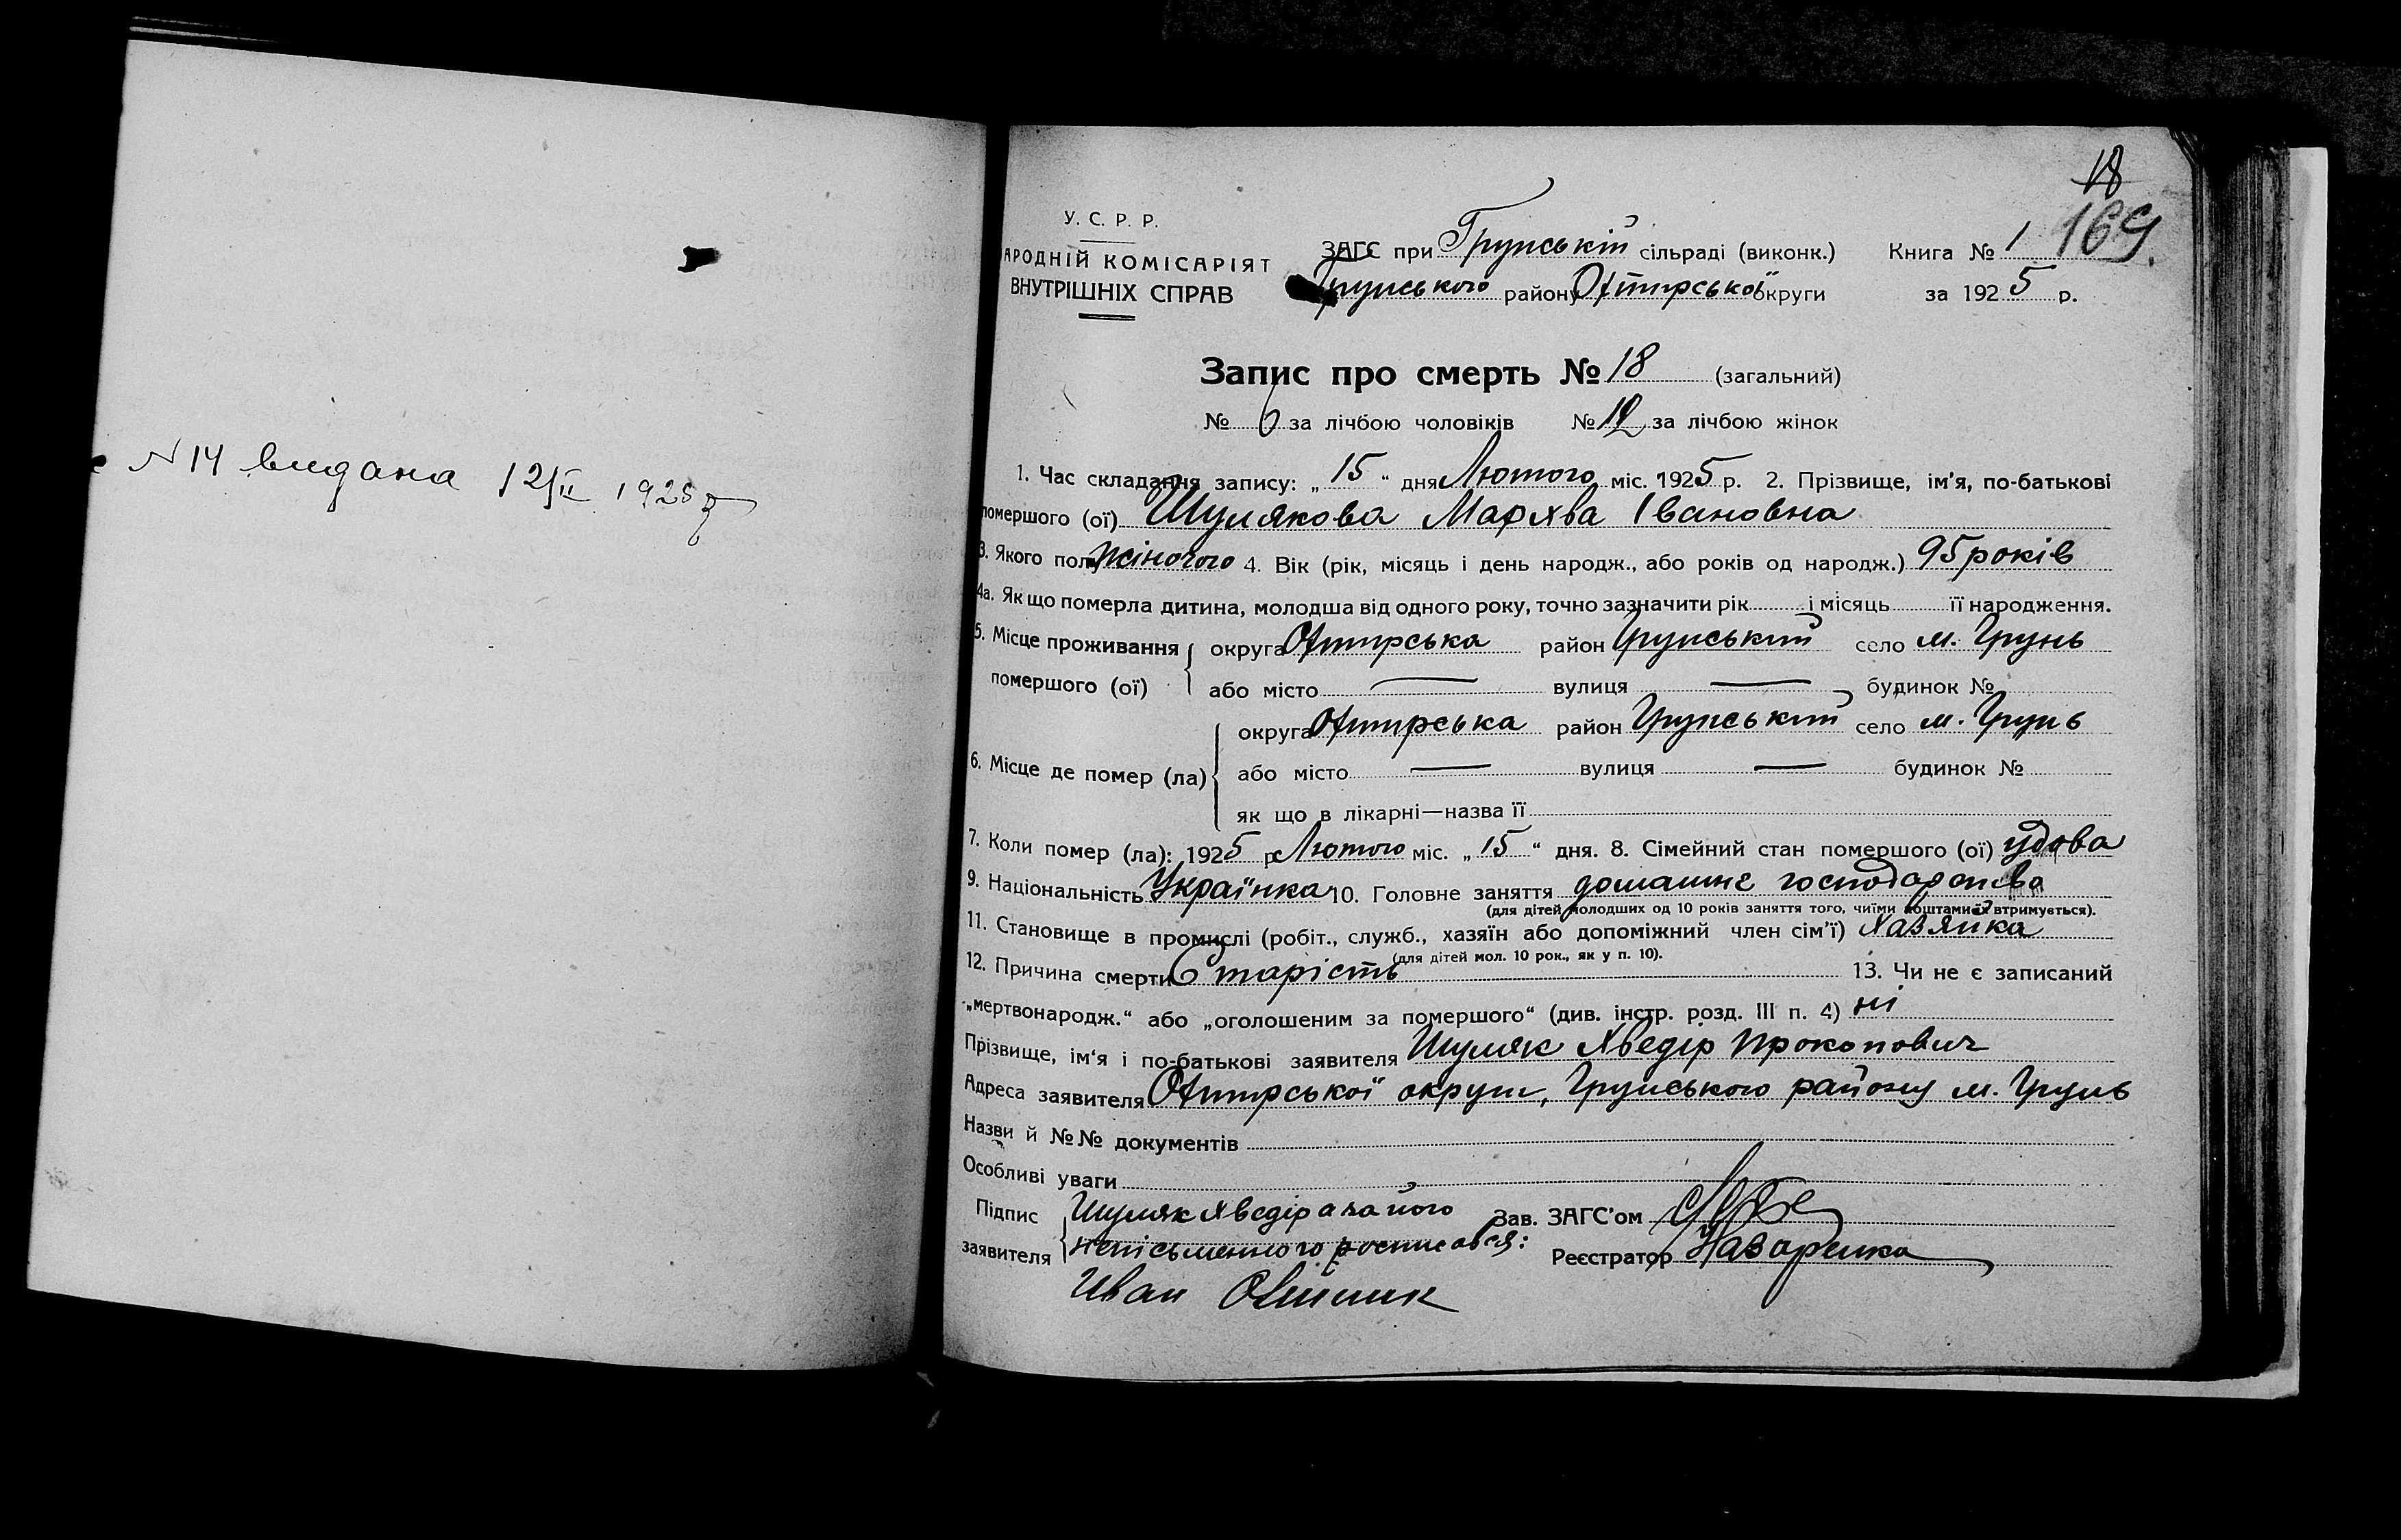 N 14 видана 12/II 1925 р
18
169.
У. С. Р. Р.
АРОДНІЙ КОМІСАРІЯТ
ВНУТРІШНІХ СПРАВ
ЗАГС при Грунській сільраді (виконк.) Книга № 1
Грунського району Охтирської округи за 1925 р.
Запис про смерть № 18 (загальний)
№ 6 за лічбою чоловіків № 12 за лічбою жінок
1. Час складання запису: „ 15 “ дня Лютого міс. 1925 р. 2. Прізвище, ім’я, по-батькові
помершого (ої) Шулякова Мархва Івановна
3. Якого полу жіночого 4. Вік (рік, місяць і день народж., або років од народж.) 95 років
4а. Як що померла дитина, молодша від одного року, точно зазначити рік і місяць її народження.
5. Місце проживання округа Охтирська район Грунський село м. Грунь
помершого (ої) або місто — вулиця — будинок №
округа Охтирська район Грунський село м. Грунь
6. Місце де помер (ла) або місто — вулиця — будинок №
як що в лікарні—назва її
7. Коли помер (ла): 1925 р. Лютого міс. „ 15 “ дня. 8. Сімейний стан помершого (ої) удова
9. Національність Українка 10. Головне заняття домашнє господарство
(для дітей молодших од 10 років заняття того, чиїми коштами їх втримується).
11. Становище в промислі (робіт., служб., хазяїн або допоміжний член сім’ї) Хазяйка
(для дітей мол. 10 рок., як у п. 10).
12. Причина смерти Старість 13. Чи не є записаний
„мертвонародж.“ або „оголошеним за помершого“ (див. інстр. розд. III п. 4) ні
Прізвище, ім‘я і по-батькові заявителя Шуляк Хведір Прокопович
Адреса заявителя Охтирської округи, Грунського району м. Грунь
Назви й №№ документів
Особливі уваги
Підпис Шуляк Хведір а за його Зав. ЗАГС’ом
заявителя непісьменного росписався: Реєстратор Назаренко
Иван Олійник